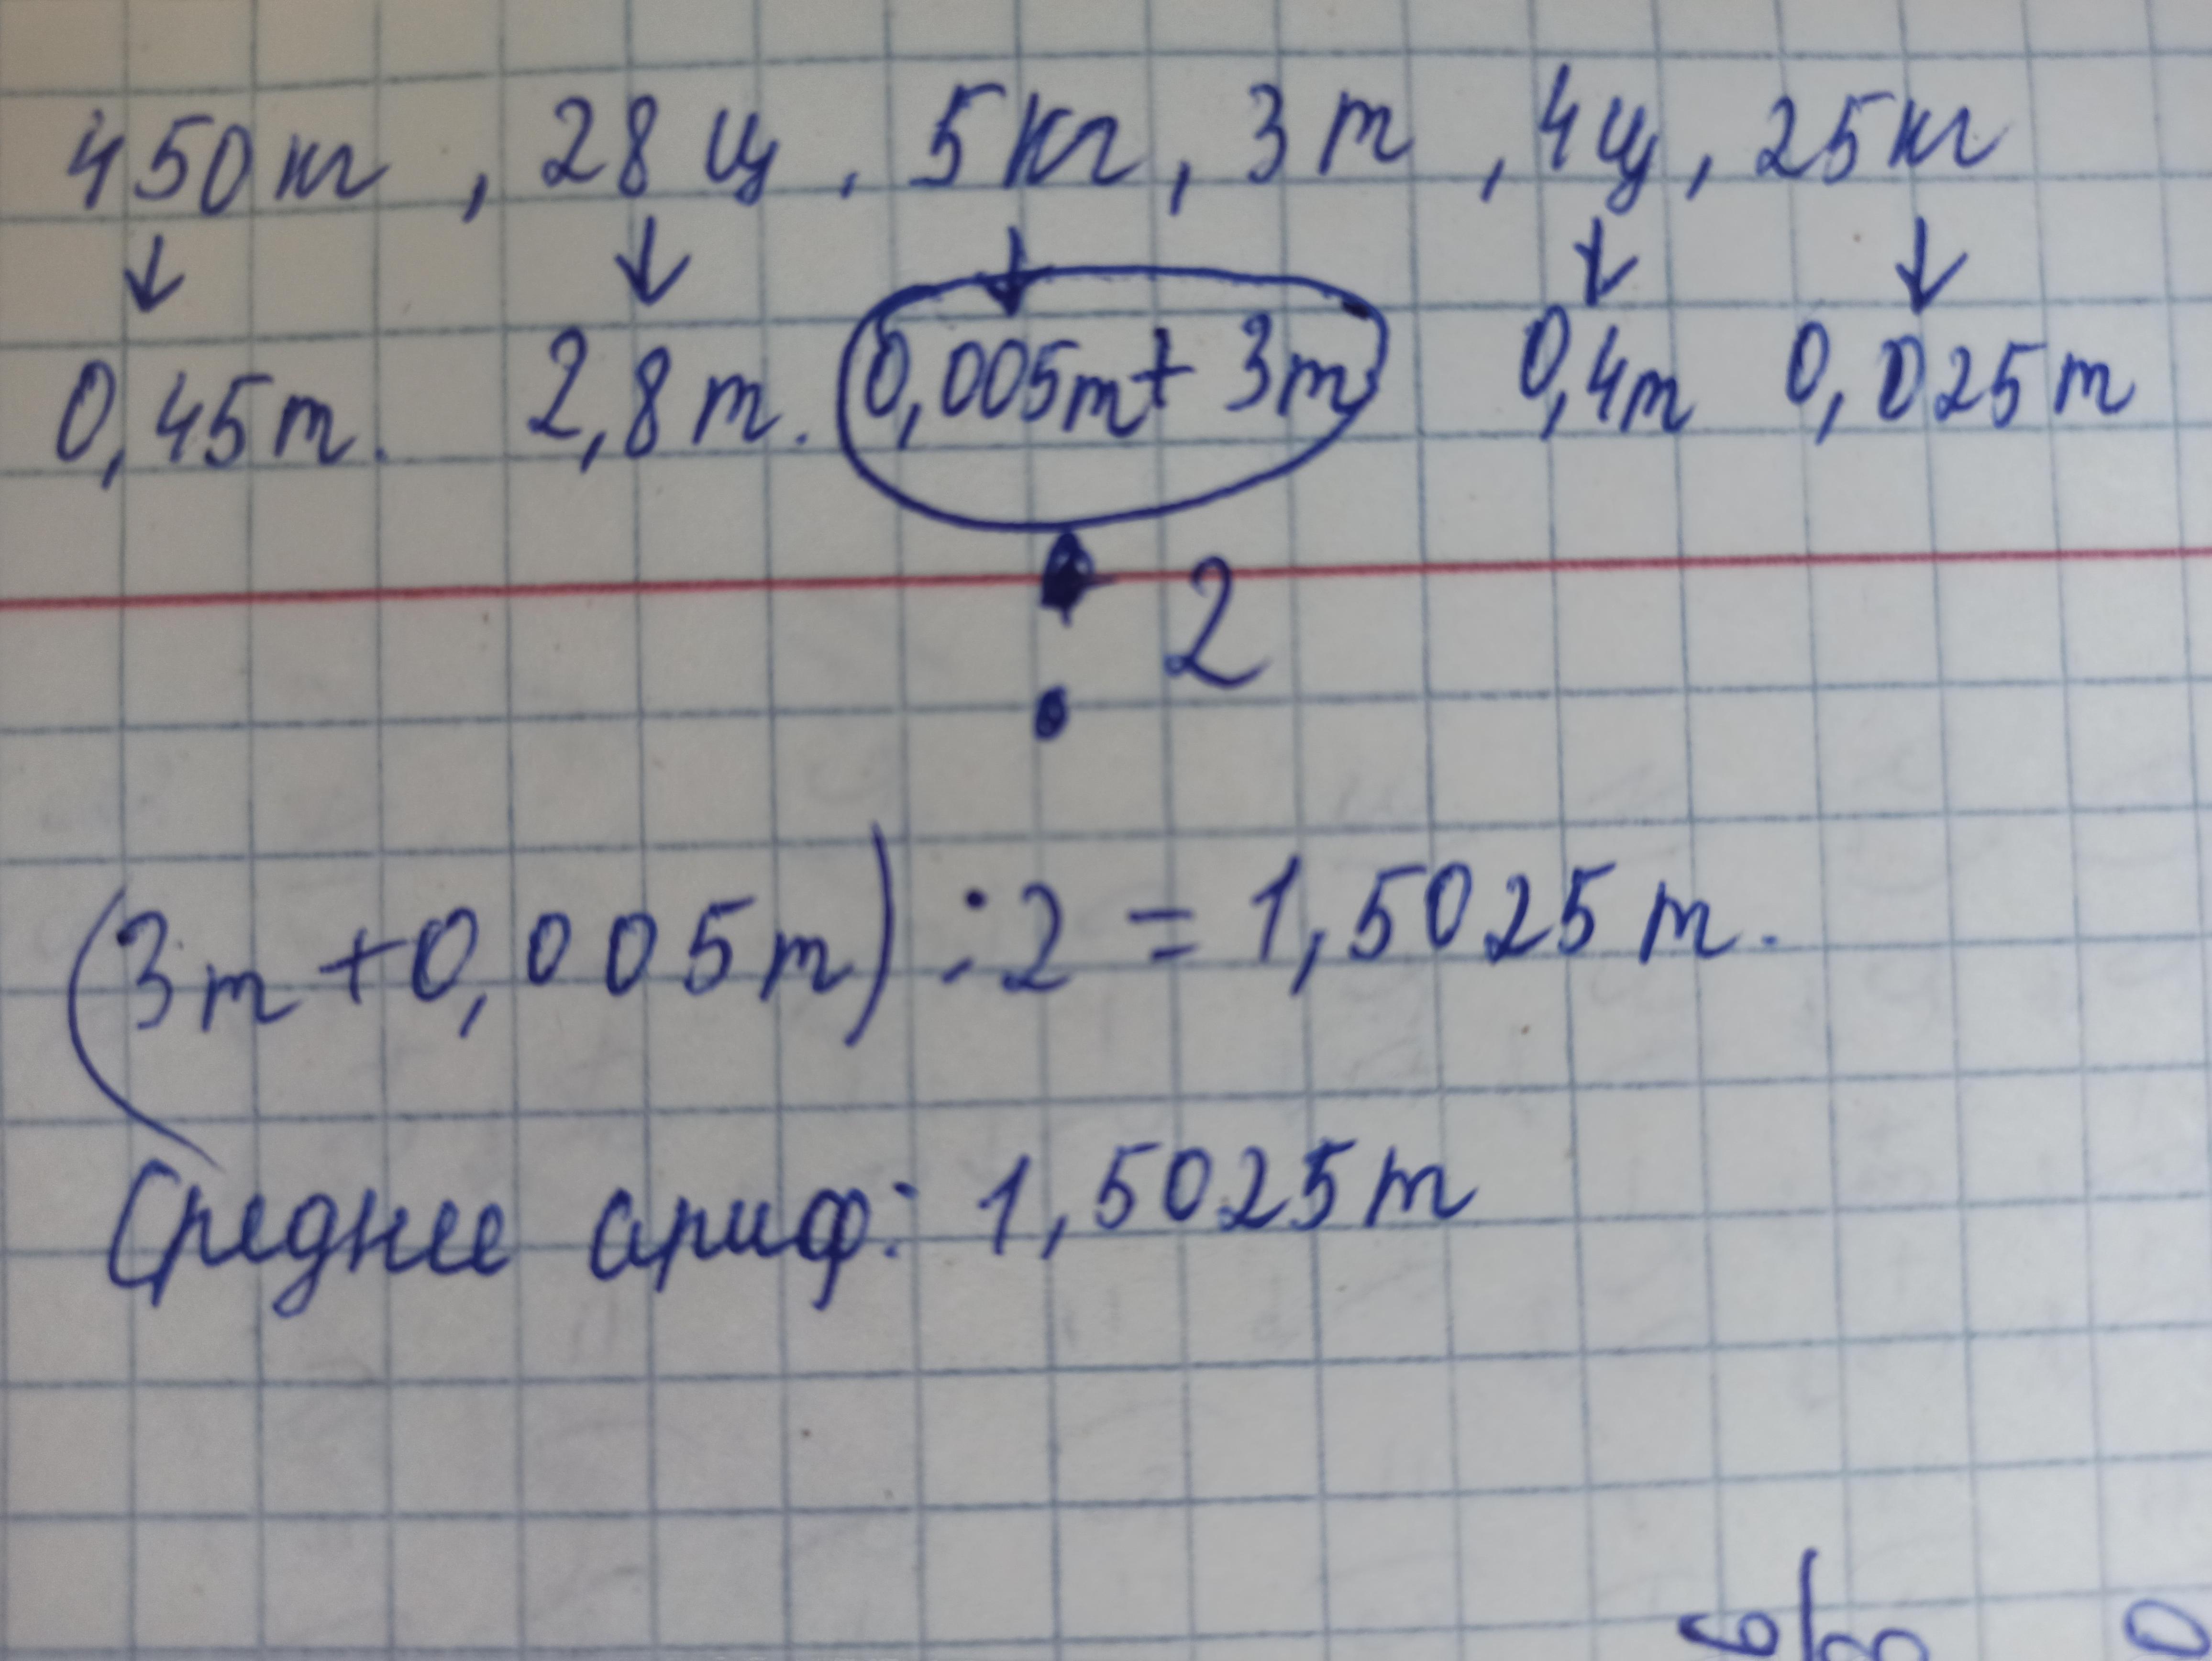 450 кг, 28 ц, 5 кг, 3 т, 4 ц, 25 кг
↓ ↓ ↓ ↓ ↓
0,45 т. 2,8 т. 0,005 т + 3 т 0,4 т 0,025 т
: 2
(3 т + 0,005 т) : 2 = 1,5025 т.
Среднее ариф: 1,5025 т